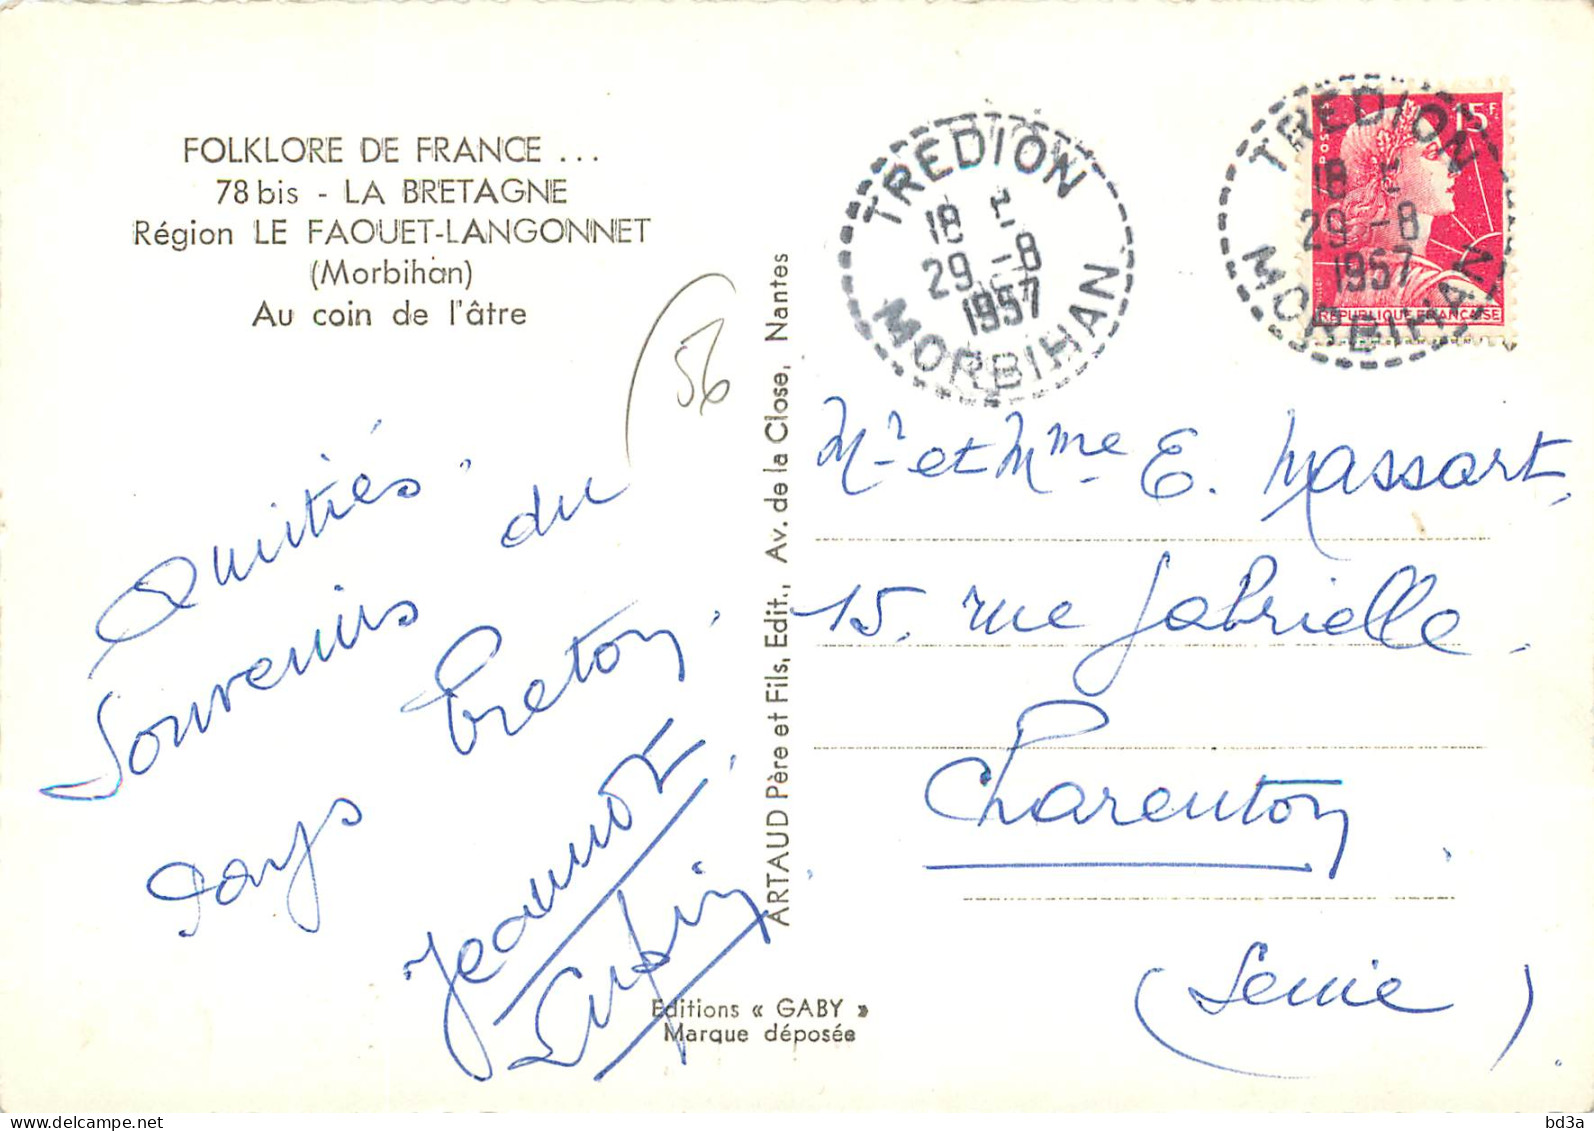 FOLKLORE DE FRANCE ...
78 bis - LA BRETAGNE
Région LE FAOUET-LANGONNET
(Morbihan)
Au coin de l'âtre
56
Amitiés
Souvenirs du
Pays breton.
Jeannot
Editions « GABY »
Marque déposée
ARTAUD Père et Fils, Edit., Av. de la Close, Nantes
TREDION
18 H
29 -8
1957
MORBIHAN
POSTES
15F
REPUBLIQUE FRANCAISE
TREDION
18 H
29 -8
1957
MORBIHAN
Mr et Mme E. Massart
15, rue Gabrielle
Charenton
(Seine)
bd3a